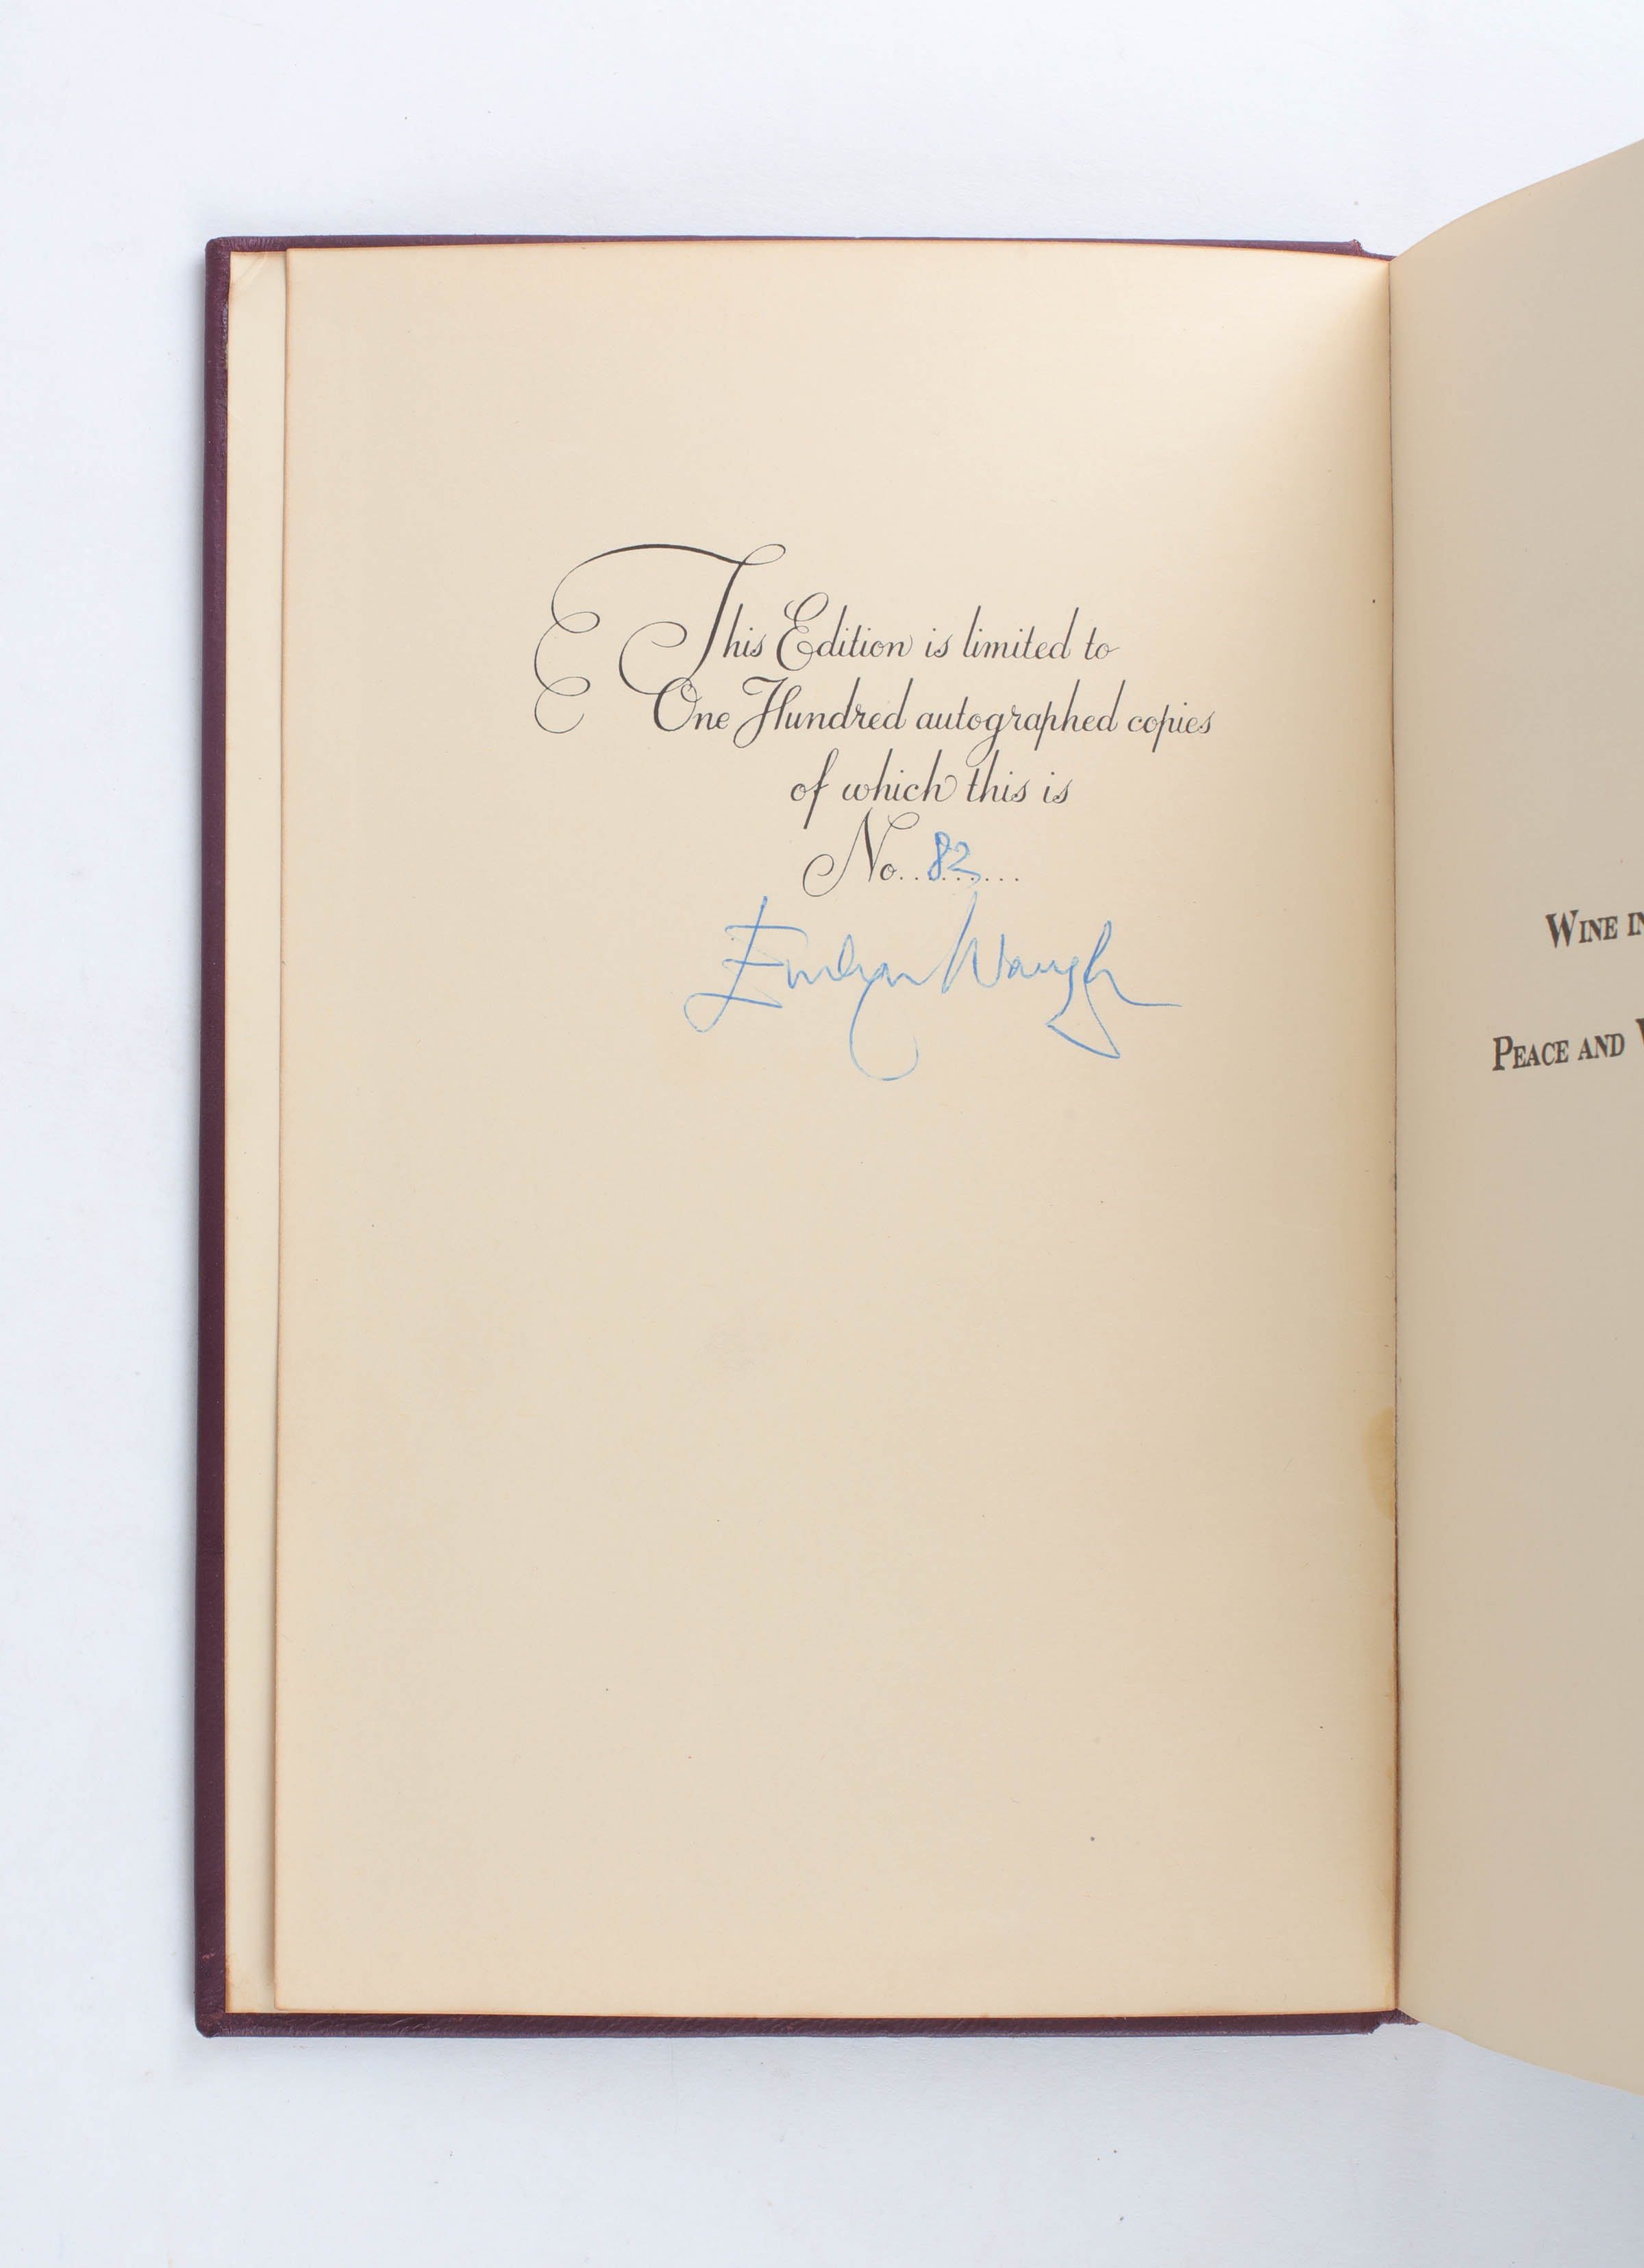 This Edition is limited to
One Hundred autographed copies
of which this is
No..82......
Evelyn Waugh
WINE IN
PEACE AND W